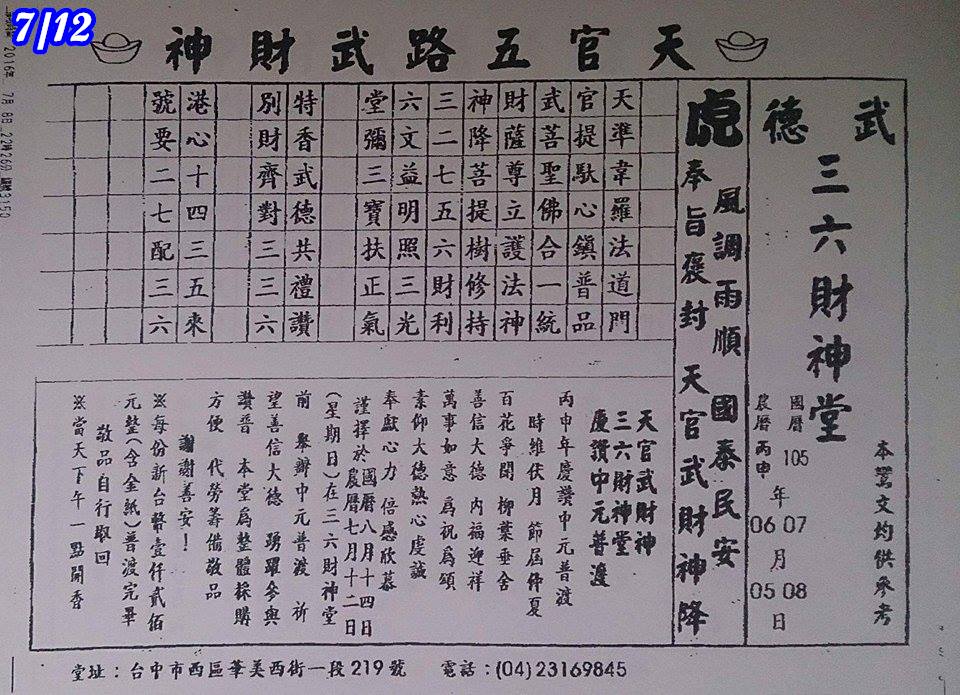 7/12
2016年 7月 8日 22時26分
天官五路武財神
武德
三六財神堂
本鸞文均供參考
國曆105年07月08日
農曆丙申年06月05日
虎
風調雨順 國泰民安
奉旨褒封 天官武財神降
天準韋羅法道門
官提馱心鎮普品
武菩聖佛合一統
財薩尊立護法神
神降菩提樹修持
三二七五六財利
六文益明照三光
堂彌三寶扶正氣
特香武德共禮讚
別財齊對三三六
港心十四三五來
號要二七配三六
天官武財神
三六財神堂
慶讚中元普渡
丙申年慶讚中元普渡
時維伏月 節屆仲夏
百花爭開 柳葉垂舍
善信大德 內福迎祥
萬事如意 為祝為頌
素仰大德熱心虔誠
奉獻心力 倍感欣慕
謹擇於國曆八月十四日
農曆七月十二日
(星期日)在三六財神堂
前 舉辦中元普渡 祈
望善信大德 踴躍參與
讚普 本堂為整體採購
方便 代勞籌備敬品
謝謝善安!
※每份新台幣壹仟貳佰
元整(含金紙)普渡完畢
敬品自行取回
※當天下午一點開香
堂址:台中市西區華美西街一段219號 電話:(04)23169845